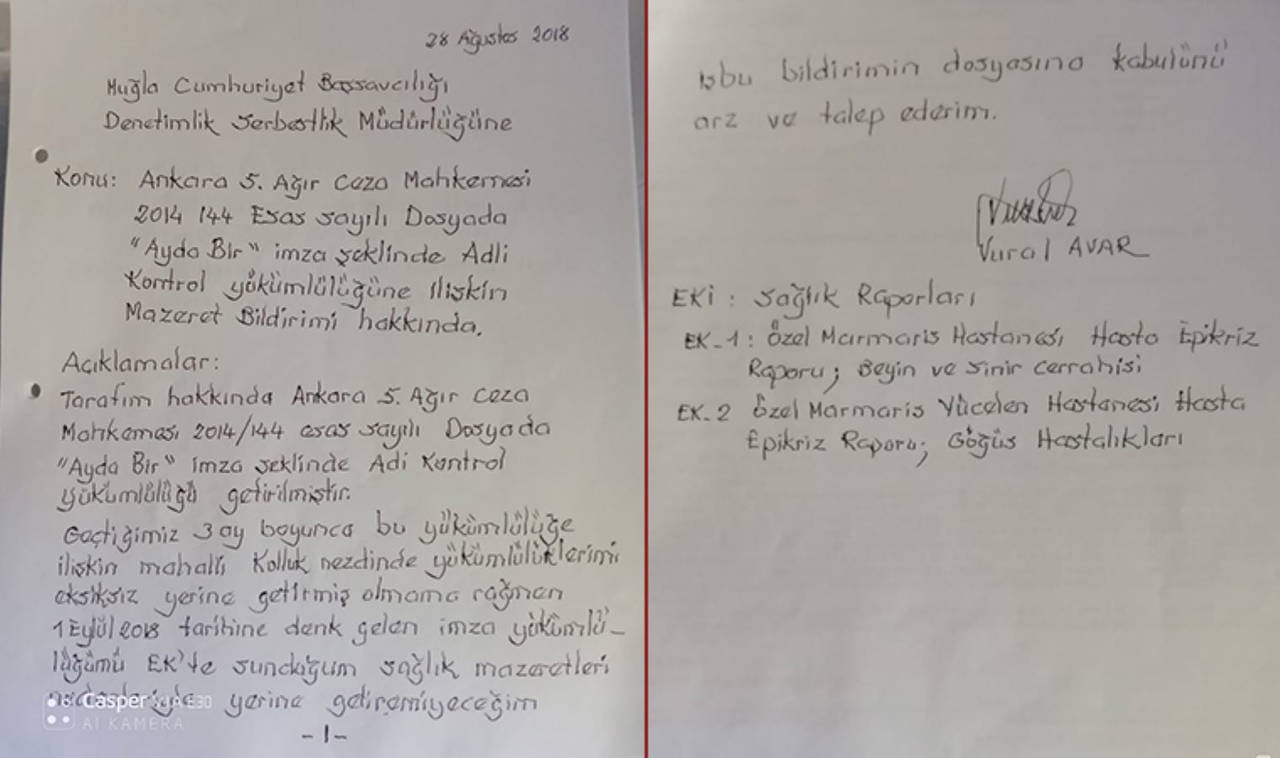 28 Ağustos 2018
Muğla Cumhuriyet Başsavcılığı
Denetimlik Serbestlik Müdürlüğüne
Konu: Ankara 5. Ağır Ceza Mahkemesi
2014 144 Esas sayılı Dosyada
"Ayda Bir" imza şeklinde Adli
Kontrol yükümlülüğüne ilişkin
Mazeret Bildirimi hakkında.
Açıklamalar:
Tarafım hakkında Ankara 5. Ağır Ceza
Mahkemesi 2014/144 esas sayılı Dosyada
"Ayda Bir" imza şeklinde Adi Kontrol
yükümlülüğü getirilmiştir.
Geçtiğimiz 3 ay boyunca bu yükümlülüğe
ilişkin mahalli Kolluk nezdinde yükümlülüklerimi
eksiksiz yerine getirmiş olmama rağmen
1 Eylül 2018 tarihine denk gelen imza yükümlü-
lüğümü EK'te sunduğum sağlık mazeretleri
yerine getiremiyeceğim
-1-
Casper VIA E30
AI KAMERA
işbu bildirimin dosyasına kabulünü
arz ve talep ederim.
Vural AVAR
EKİ: Sağlık Raporları
EK-1: Özel Marmaris Hastanesi, Hasta Epikriz
Raporu; Beyin ve sinir cerrahisi
EK-2 Özel Marmaris Yücelen Hastanesi Hasta
Epikriz Raporu; Göğüs Hastalıkları